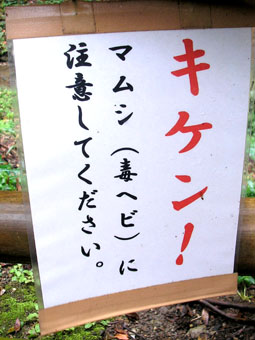 キケン!
マムシ(毒ヘビ)に
注意してください。